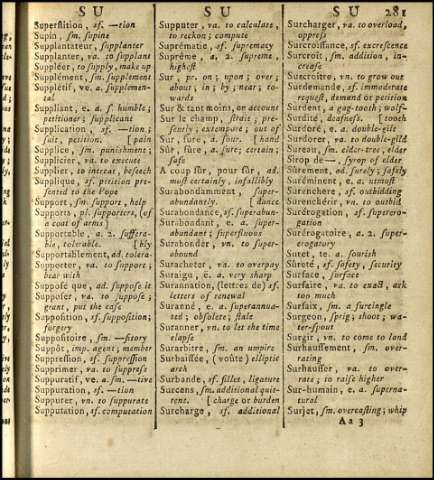 S U
Superstition, sf. —tion
Supin, sm. supine
Supplantateur, supplanter
Supplanter, va. to supplant
Suppléer, to supply, make up
Supplément, sm. supplement
Supplétif, ve. a. supplemental
Suppliant, e. a. s. humble;
petitioner; supplicant
Supplication, sf. —tion;
suit, petition. [pain
Supplice, sm. punishment;
Supplicier, va. to execute
Supplier, to intreat, beseech
Supplique, sf. petition presented
to the Pope
Support, sm. support, help
Supports, pl. supporters, (of
a coat of arms)
Supportable, a. 2. sufferable,
tolerable. [bly
Supportablement, ad. tolera-
Supporter, va. to support;
bear with
Supposé que, ad. suppose it
Supposer, va. to suppose;
grant, put the case
Supposition, sf. supposition;
forgery
Suppositoire, sm. —sitory
Suppôt, imp. agent; member
Suppression, sf. suppression
Supprimer, va. to suppress
Suppuratif, ve. a. sm. —tive
Suppuration, sf. —tion
Suppurer, vn. to suppurate
Supputation, sf. computation
S U
Supputer, va. to calculate,
to reckon; compute
Suprématie, sf. supremacy
Suprême, a. 2. supreme,
highest
Sur, pr. on; upon; over;
about; in; by; near; towards
Sur & tant moins, on account
Sur le champ, strait; presently;
extempore; out of
Sur, sure, a. sour. [hand
Sûr, sûre, a. sure; certain;
safe
A coup sûr, pour sûr, ad.
most certainly, infallibly
Surabondamment, superabundantly.
[dance
Surabondance, sf. superabun-
Surabondant, e. a. superabundant;
superfluous
Surabonder, vn. to superabound
Suracheter, va. to overpay
Suraigu, ë. a. very sharp
Surannation, (lettres de) sf.
letters of renewal
Suranné, e. a. superannuated;
obsolete; stale
Suranner, vn. to let the time
elapse
Surarbitre, sm. an umpire
Surbaissée, (voûte) elliptic
arch
Surbande, sf. fillet, ligature
Surcens, sm. additional quitrent.
[charge or burden
Surcharge, sf. additional
S U 281
Surcharger, va. to overload,
oppress
Surcroissance, sf. excrescence
Surcroit, sm. addition, increase
Surcroitre, vn. to grow out
Surdemande, sf. immoderate
request, demand or petition
Surdent, a gag-tooth; wolf-
Surdité, deafness. [tooth
Surdoré, e. a. double-gilt
Surdorer, va. to double-gild
Sureau, sm. elder-tree; elder
Sirop de —, syrop of elder
Sûrement, ad. surely; safely
Suréminent, e. a. unusuff
Surenchere, sf. outbidding
Surenchérir, vn. to outbid
Surérogation, sf. supererogation
Surérogatoire, a. 2. supererogatory
Suret, te. a. sourish
Sûreté, sf. safety, security
Surface, surface
Surfaire, va. to exact, ask
too much
Surfaix, sm. a surcingle
Surgeon, sprig; shoot; water-spout
Surgir, vn. to come to land
Surhaussement, sm. overrating
Surhausser, va. to overrate;
to raise higher
Sur-humain, e. a. supernatural
Surjet, sm. overcasting; whip
A a 3